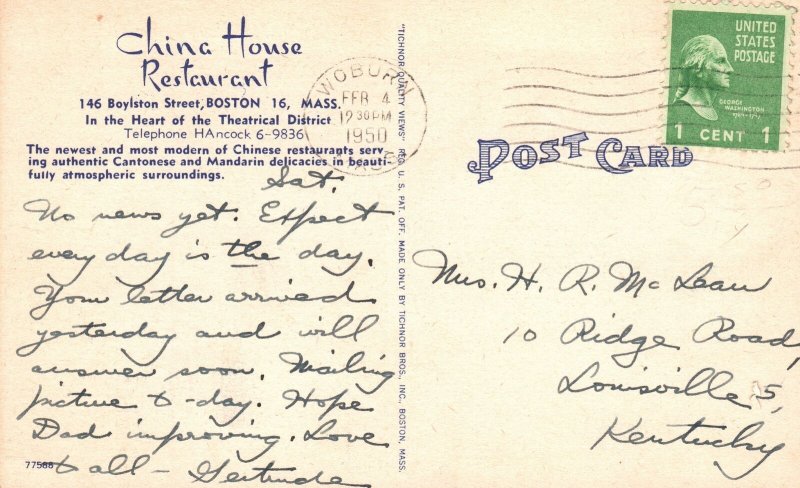 China House
Restaurant
146 Boylston Street, BOSTON 16, MASS.
In the Heart of the Theatrical District
Telephone HAncock 6-9836
The newest and most modern of Chinese restaurants serv-
ing authentic Cantonese and Mandarin delicacies in beauti-
fully atmospheric surroundings.
Sat.
No news yet. Expect
every day is the day.
Your letter arrived
yesterday and will
answer soon. Mailing
picture to-day. Hope
Dad improving. Love
to all - Gertrude
77588
"TICHNOR QUALITY VIEWS" REG. U. S. PAT. OFF. MADE ONLY BY TICHNOR BROS., INC., BOSTON, MASS.
WOBURN
FEB 4
12 30 PM
1950
UNITED
STATES
POSTAGE
GEORGE
WASHINGTON
1 CENT 1
POST CARD
Mrs. H. R. McLean
10 Ridge Road,
Louisville 5,
Kentucky